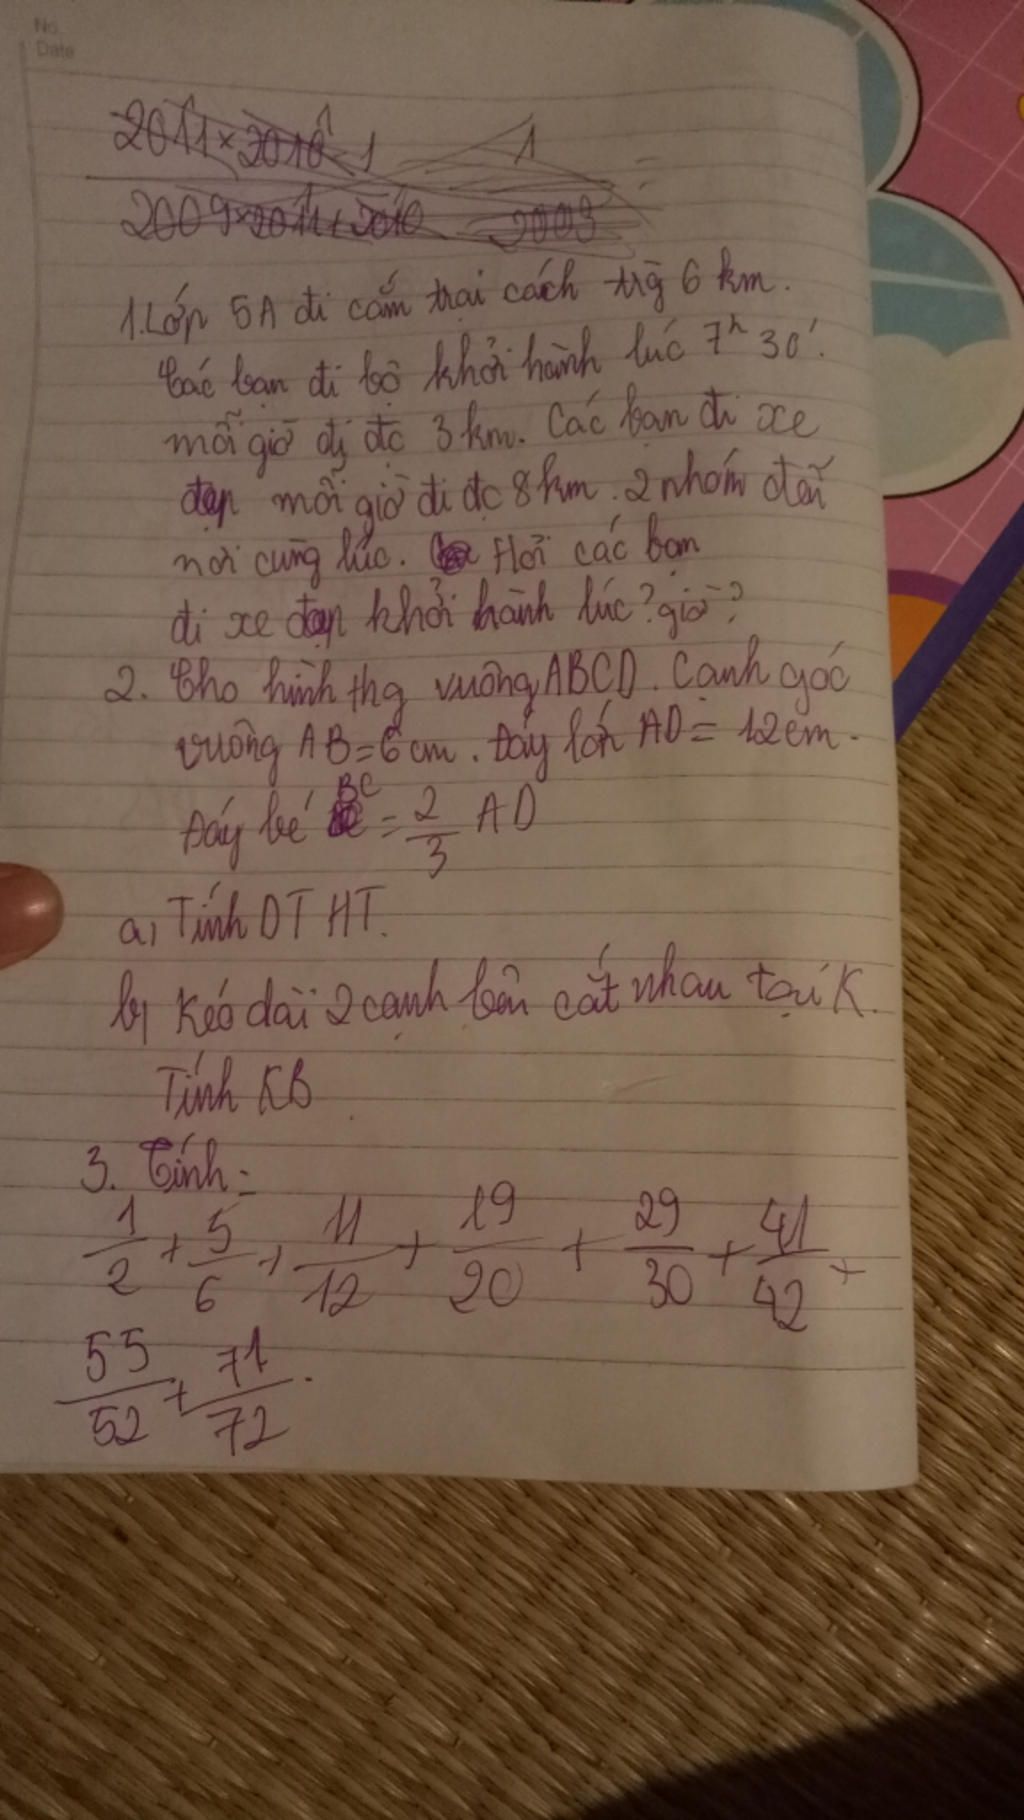 No.
Date
2011 × 2010 - 1 1 =
2009 × 2011 + 2010 2009
1. Lớp 5A đi cắm trại cách trg 6 km.
Các bạn đi bộ khởi hành lúc 7h 30'.
mỗi giờ đi đc 3 km. Các bạn đi xe
đạp mỗi giờ đi đc 8 km. 2 nhóm đến
nơi cùng lúc. Hỏi các bạn
đi xe đạp khởi hành lúc? giờ?
2. Cho hình thg vuông ABCD. Cạnh góc
vuông AB = 6 cm. Đáy lớn AD = 12 cm.
Đáy bé BC = 2/3 AD
a, Tính DT HT.
b, Kéo dài 2 cạnh bên cắt nhau tại K.
Tính KB
3. Tính:
1/2 + 5/6 + 11/12 + 19/20 + 29/30 + 41/42 +
55/52 + 71/72.